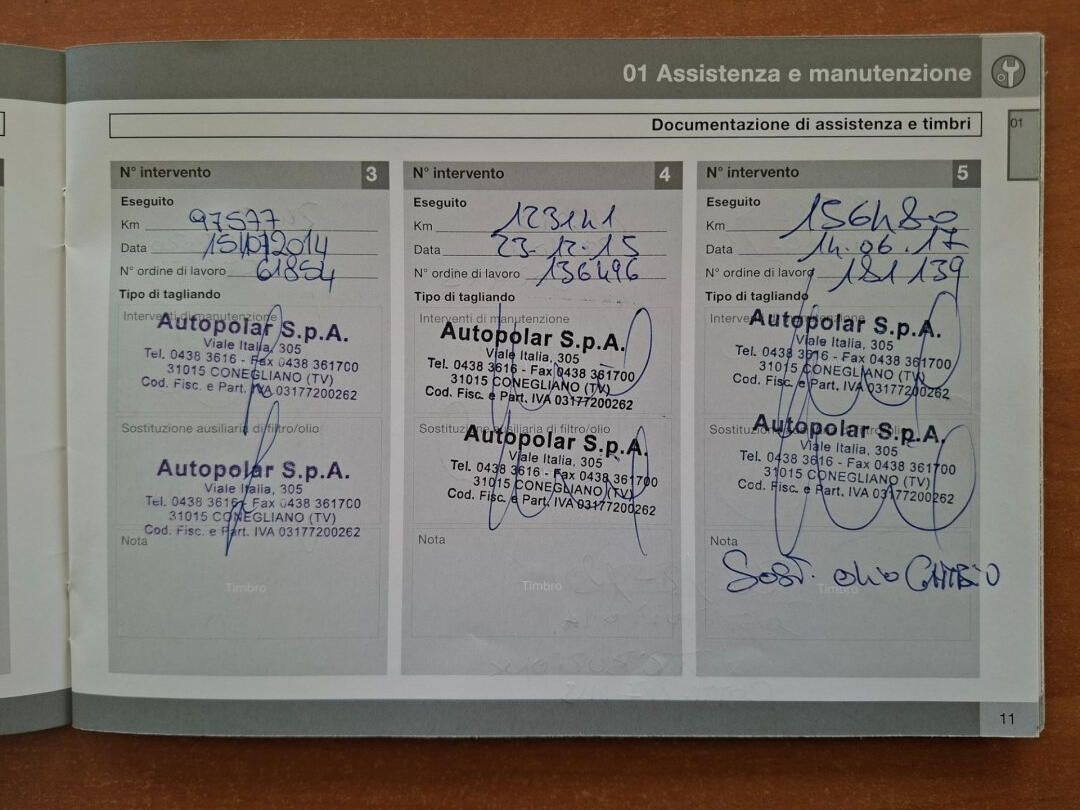 01 Assistenza e manutenzione
01
Documentazione di assistenza e timbri
N° intervento 3
Eseguito
Km 97577
Data 15/07/2014
N° ordine di lavoro 61854
Tipo di tagliando
Interventi di manutenzione
Autopolar S.p.A.
Viale Italia, 305
Tel. 0438 3616 - Fax 0438 361700
31015 CONEGLIANO (TV)
Cod. Fisc. e Part. IVA 03177200262
Sostituzione ausiliaria di filtro/olio
Autopolar S.p.A.
Viale Italia, 305
Tel. 0438 3616 - Fax 0438 361700
31015 CONEGLIANO (TV)
Cod. Fisc. e Part. IVA 03177200262
Nota
Timbro
N° intervento 4
Eseguito
Km 123141
Data 23-12-15
N° ordine di lavoro 136496
Tipo di tagliando
Interventi di manutenzione
Autopolar S.p.A.
Viale Italia, 305
Tel. 0438 3616 - Fax 0438 361700
31015 CONEGLIANO (TV)
Cod. Fisc. e Part. IVA 03177200262
Sostituzione ausiliaria di filtro/olio
Autopolar S.p.A.
Viale Italia, 305
Tel. 0438 3616 - Fax 0438 361700
31015 CONEGLIANO (TV)
Cod. Fisc. e Part. IVA 03177200262
Nota
Timbro
N° intervento 5
Eseguito
Km 156480
Data 14.06.17
N° ordine di lavoro 181139
Tipo di tagliando
Interventi di manutenzione
Autopolar S.p.A.
Viale Italia, 305
Tel. 0438 3616 - Fax 0438 361700
31015 CONEGLIANO (TV)
Cod. Fisc. e Part. IVA 03177200262
Sostituzione ausiliaria di filtro/olio
Autopolar S.p.A.
Viale Italia, 305
Tel. 0438 3616 - Fax 0438 361700
31015 CONEGLIANO (TV)
Cod. Fisc. e Part. IVA 03177200262
Nota
Sost. olio CAMBIO
Timbro
11